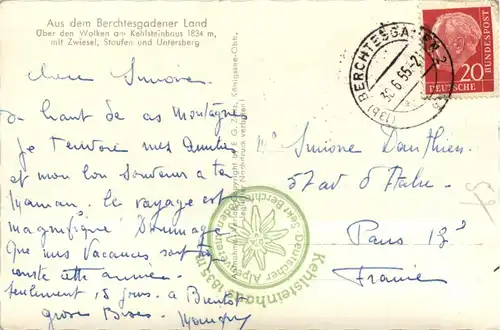 Aus dem Berchtesgadener Land
Über den Wolken am Kehlsteinhaus 1834 m,
mit Zwiesel, Staufen und Untersberg
Chère Simone
du haut de ces Montagnes
je t'envoie mes Amitiés
et mon bon Souvenir a ta
Maman. le voyage est
magnifique Dommage
que mes Vacances soit
courte cette année.
seulement 15 jours. a Bientot
grosse Bises
BERCHTESGADEN 2
(13b)
30.6.55-2
20
DEUTSCHE
BUNDESPOST
Simone Danthien
57 av d'Italie
Paris 13e
France
Kehlsteinhaus 1835 m
Deutscher Alpenverein
Sekt. Berchtesgaden